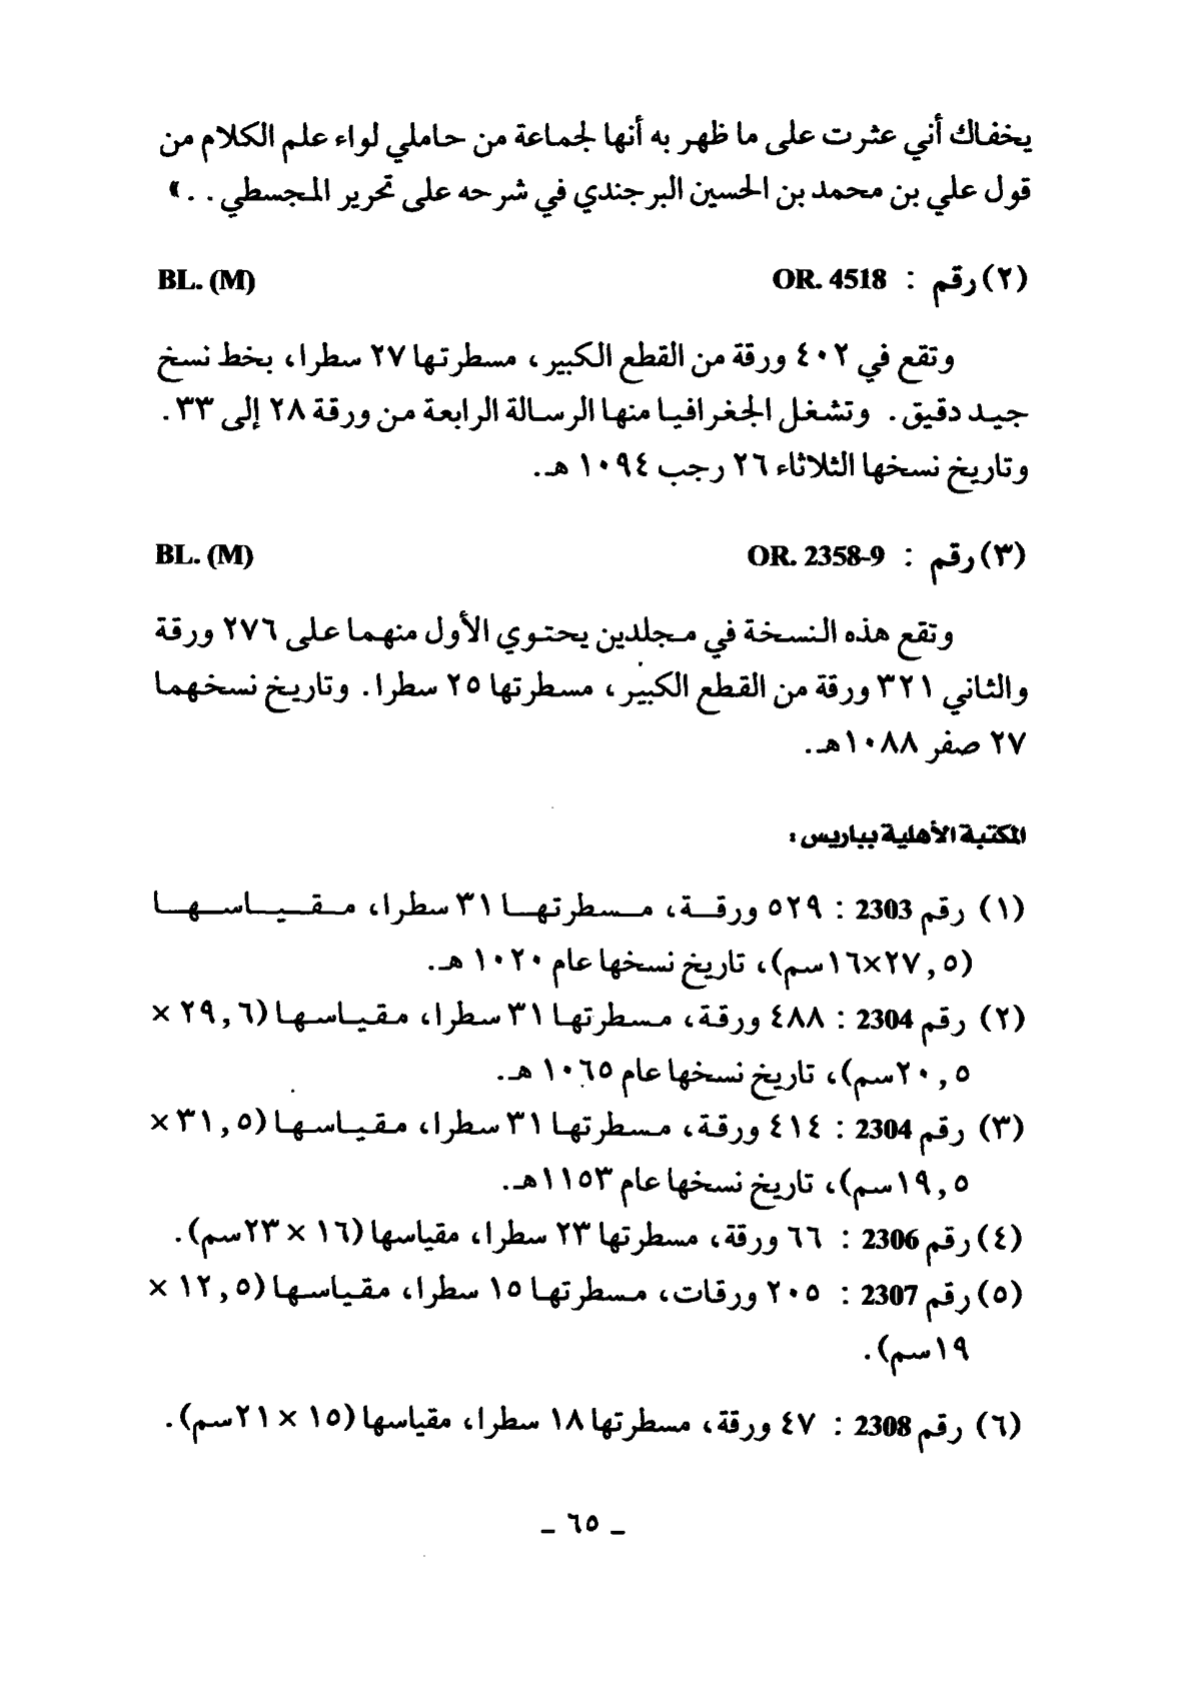 يخفاك أني عثرت على ما ظهر به أنها لجماعة من حاملي لواء علم الكلام من
قول علي بن محمد بن الحسين البرجندي في شرحه على تحرير المجسطي . . »
(٢) رقم : OR. 4518 BL. (M)
وتقع في ٤٠٢ ورقة من القطع الكبير، مسطرتها ٢٧ سطرا، بخط نسخ
جيد دقيق. وتشغل الجغرافيا منها الرسالة الرابعة من ورقة ٢٨ إلى ٣٣.
وتاريخ نسخها الثلاثاء ٢٦ رجب ١٠٩٤ هـ.
(٣) رقم : OR. 2358-9 BL. (M)
وتقع هذه النسخة في مجلدين يحتوي الأول منهما على ٢٧٦ ورقة
والثاني ٣٢١ ورقة من القطع الكبير، مسطرتها ٢٥ سطرا. وتاريخ نسخهما
٢٧ صفر ١٠٨٨هـ.
المكتبة الأهلية بباريس :
(١) رقم 2303 : ٥٢٩ ورقة، مسطرتها ٣١ سطرا، مقياسها
(٢٧,٥×١٦سم)، تاريخ نسخها عام ١٠٢٠ هـ.
(٢) رقم 2304 : ٤٨٨ ورقة، مسطرتها ٣١ سطرا، مقياسها (٢٩,٦ ×
٢٠,٥سم)، تاريخ نسخها عام ١٠٦٥ هـ.
(٣) رقم 2304 : ٤١٤ ورقة، مسطرتها ٣١ سطرا، مقياسها (٣١,٥ ×
١٩,٥سم)، تاريخ نسخها عام ١١٥٣هـ.
(٤) رقم 2306 : ٦٦ ورقة، مسطرتها ٢٣ سطرا، مقياسها (١٦ × ٢٣سم).
(٥) رقم 2307 : ٢٠٥ ورقات، مسطرتها ١٥ سطرا، مقياسها (١٢,٥ ×
١٩سم).
(٦) رقم 2308 : ٤٧ ورقة، مسطرتها ١٨ سطرا، مقياسها (١٥ × ٢١سم).
ـ ٦٥ ـ